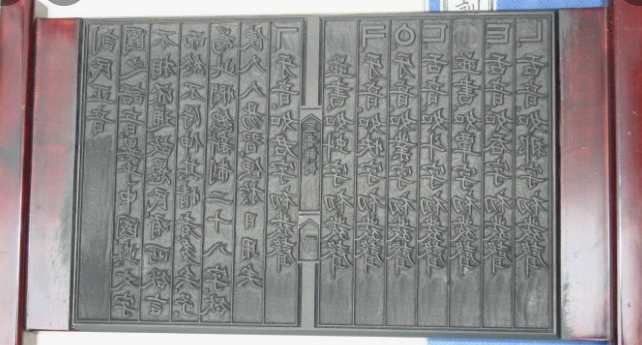 訓民正音
國之語音異乎中國與文字
不相流通故愚民有所欲言
而終不得伸其情者多矣予
為此憫然新制二十八字欲
使人人易習便於日用矣
ㄱ牙音如君字初發聲
並書如虯字初發聲
ㅋ牙音如快字初發聲
ㆁ牙音如業字初發聲
ㄷ舌音如斗字初發聲
並書如覃字初發聲
ㅌ舌音如呑字初發聲
ㄴ舌音如那字初發聲